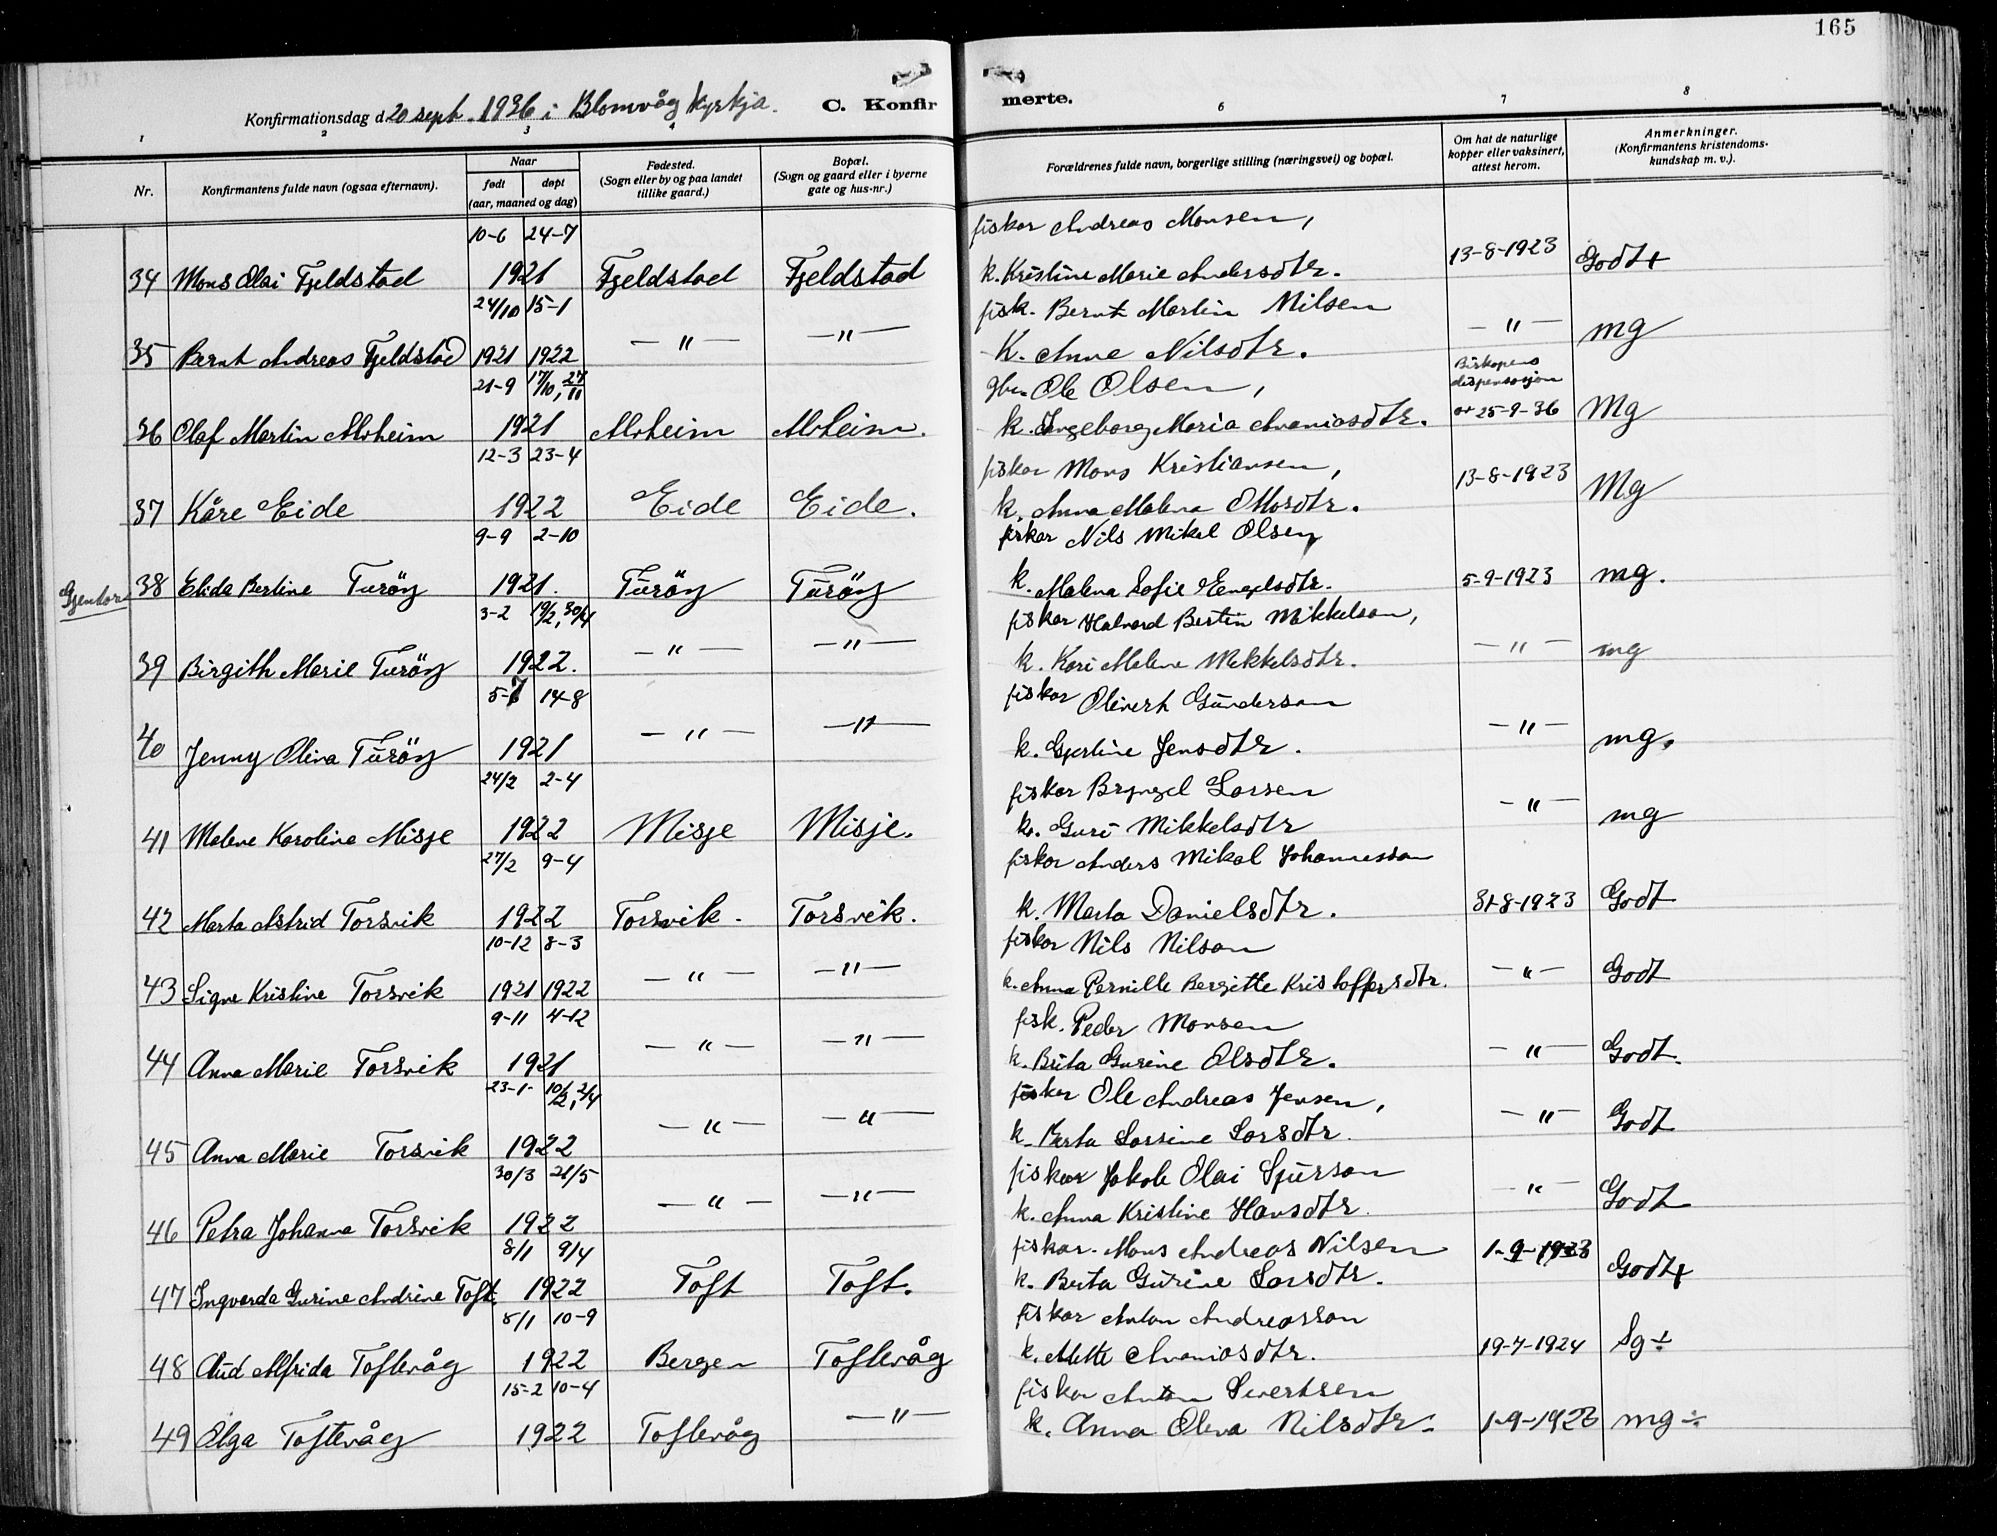 165
Konfirmationsdag d. 20 sept. 1936 i Blomvåg kyrkja. C. Konfirmerte.
1 2 3 4 6 7 8
Nr. Konfirmantens fulde navn (ogsaa efternavn). Naar født døpt (aar, maaned og dag) Fødested. (Sogn eller by og paa landet tillike gaard.) Bopæl. (Sogn og gaard eller i byerne gate og hus-nr.) Forældrenes fulde navn, borgerlige stilling (næringsvei) og bopæl. Om hat de naturlige kopper eller vaksinert, attest herom. Anmerkninger. (Konfirmantens kristendomskundskap m. v.).
10-6 24-7 fiskar Andreas Monsen,
34 Mons Olai Fjeldstad 1921 Fjeldstad Fjeldstad k. Kristine Marie Andersdtr. 13-8-1923 Godt+
24/10 15-1 fisk. Bernt Martin Nilsen
35 Bernt Andreas Fjeldstad 1921 1922 — " — — " — K. Anne Nilsdtr. — " — mg
21-9 17/10, 27/11 gbr. Ole Olsen, Biskopens dispensasjon
36 Olaf Martin Alvheim 1921 Alvheim Alvheim. k. Ingeborg Maria Ananiasdtr. av 25-9-36 Mg
12-3 23-4 fiskar Mons Kristiansen,
37 Kåre Eide 1922 Eide Eide. k. Anna Malena Olsdtr. 13-8-1923 Mg
9-9 2-10 fiskar Nils Mikal Olsen
Gjentor
38 Elida Bertine Turöy 1921. Turöy Turöy k. Malena Sofie Engelsdtr. 5-9-1923 mg.
3-2 19/2, 30/4 fiskar Halvard Bertin Mikkelson,
39 Birgith Marie Turöy 1922. — " — — " — k. Kari Malene Mikkelsdtr. — " — mg
5-7 14-8 fiskar Olivert Gunderson
40 Jenny Olina Turöy 1921 — " — — " — k. Gjertine Jensdtr. — " — mg.
24/2 2-4 fiskar Bryngel Larsen
41 Malene Karoline Misje 1922 Misje Misje. k. Guri Mikkelsdtr — " — mg
27/2 9-4 fiskar Anders Mikal Johannesson
42 Marta Astrid Torsvik 1922 Torsvik. Torsvik. k. Marta Danielsdtr. 31-8-1923 Godt
10-12 8-3 fiskar Nils Nilson
43 Signe Kristine Torsvik 1921 1922 — " — — " — k. Anna Pernille Bergitte Kristoffersdtr. — " — Godt
9-11 4-12 fisk. Peder Monsen
44 Anna Marie Torsvik 1921 — " — — " — k. Brita Gurine Olsdtr. — " — Godt.
23-1- 10/2, 2/4 fiskar Ole Andreas Jensen,
45 Anna Marie Torsvik 1922 — " — — " — k. Berta Larsine Larsdtr. — " — Godt
30/3 21/5 fiskar Jakob Olai Sjurson
46 Petra Johanna Torsvik 1922 — " — — " — k. Anna Kristine Hansdtr. — " — Godt
8/1 9/4 fiskar. Mons Andreas Nilsen
47 Ingvarda Gurine Andrine Toft. 1922 Toft Toft. k. Berta Gurine Larsdtr. 1-9-1923 Godt+
8/1 10-9 fiskar Anton Andreasson
48 Aud Alfrida Toftevåg 1922 Bergen Toftevåg k. Mette Ananiasdtr. 19-7-1924 Sg÷
15-2 10-4 fiskar Anton Sivertsen
49 Olga Toftevåg 1922 Toftevåg — " — k. Anna Oleva Nilsdtr. 1-9-1923 mg÷